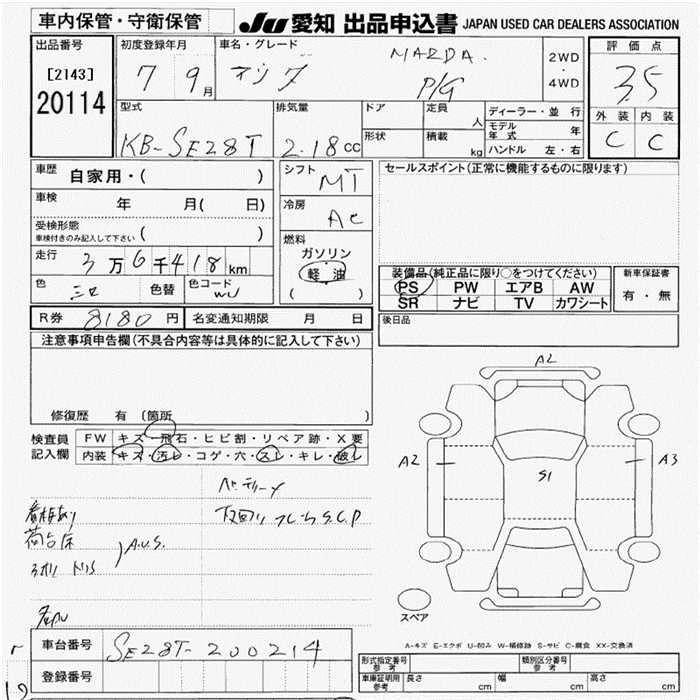 車内保管・守衛保管
JU 愛知 出品申込書 JAPAN USED CAR DEALERS ASSOCIATION
出品番号
[2143]
20114
初度登録年月
7 9月
車名・グレード
マツダ
MAZDA.
P/G
2WD
・
4WD
評価点
3.5
外装 内装
C C
型式
KB-SE28T
排気量
2.18cc
ドア
形状
定員
人
積載
kg
ディーラー・並行
モデル年式 年
ハンドル 左・右
車歴
自家用・( )
車検 年 月( 日)
受検形態
車検付きのみ記入して下さい ( )
走行 3万6千418km
色 色替 色コード
シフト MT
冷房 AC
燃料
ガソリン
軽油
( )
セールスポイント(正常に機能するものに限ります)
装備品(純正品に限り○をつけてください)
PS PW エアB AW
SR ナビ TV カワシート
新車保証書
有・無
R券 8180円 名変通知期限 月 日
後日品
注意事項申告欄(不具合内容等は具体的に記入して下さい)
修復歴 有 (箇所 )
検査員
記入欄
FW キズ・飛石・ヒビ割・リペア跡・X要
内装 キズ・汚レ・コゲ・穴・スレ・キレ・破レ
A2
A2
S1
A3
スペア
下回り フレーム S.C.P
A.U.S.
A-キズ E-エクボ U-凹み W-補修跡 S-サビ C-腐食 XX-交換済
車台番号 SE28T-200214
登録番号
型式指定番号
参考
類別区分番号
参考
車庫証明用
参考
長さ cm 幅 cm 高さ cm